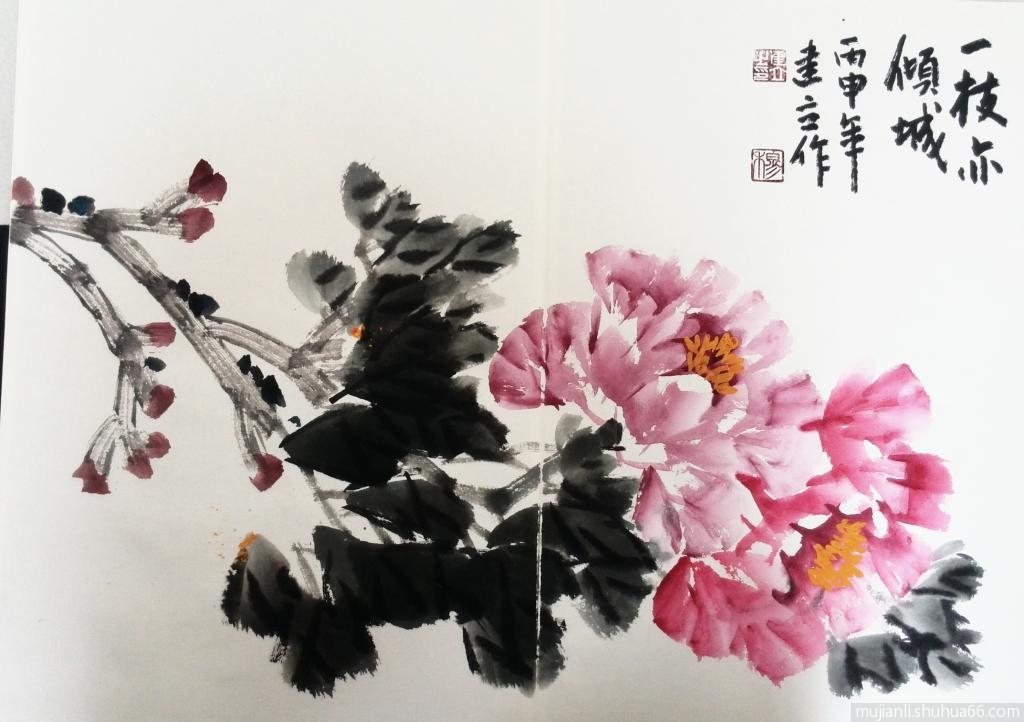 一枝亦
倾城
丙申年
建立作
穆
mujianli.shuhua66.com